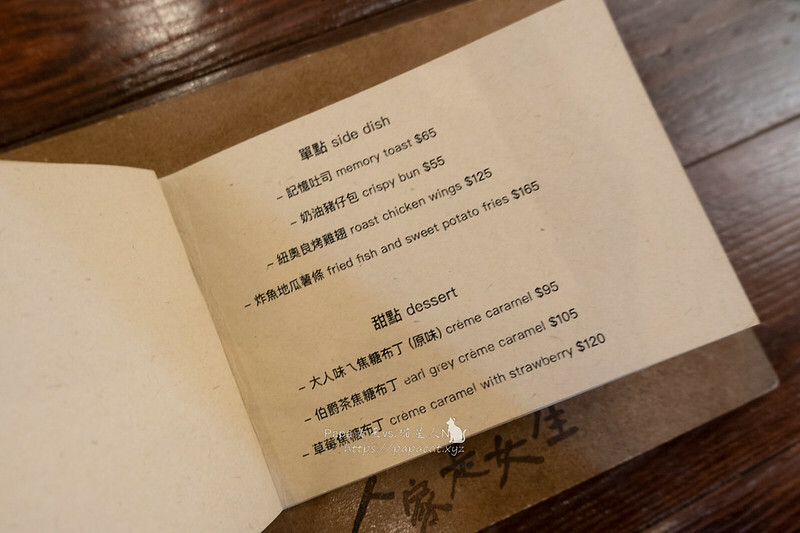 單點 side dish
– 記憶吐司 memory toast $65
– 奶油豬仔包 crispy bun $55
– 紐奧良烤雞翅 roast chicken wings $125
– 炸魚地瓜薯條 fried fish and sweet potato fries $165
甜點 dessert
– 大人味ㄟ焦糖布丁 (原味) crème caramel $95
– 伯爵茶焦糖布丁 earl grey crème caramel $105
– 草莓焦糖布丁 crème caramel with strawberry $120
https://papacat.xyz